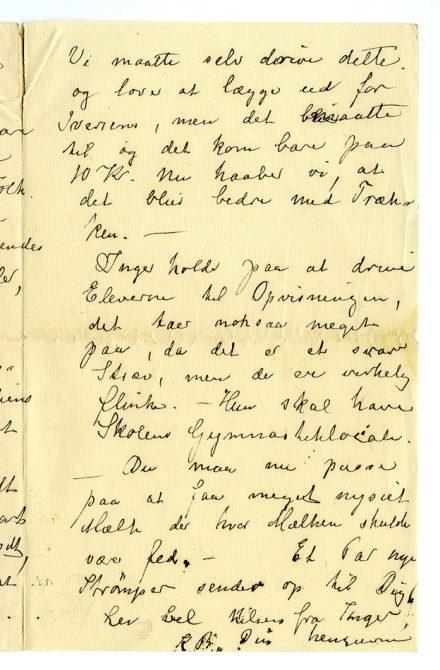 Vi maatte selv drive dette.
og love at lægge ud for
Iversens, men det maatte
til og det kom bare paa
10 Kr. Nu haaber vi, at
det blir bedre med Træk-
ken. —
Inger holder paa at drive
Eleverne til Opvisningen,
det taer noksaa meget
paa, da det er et svare
Stræv, men de er virkelig
flinke. — Hun skal have
Skolens Gymnastiklocale.
— Du maa nu passe
paa at faa meget nysiet
Mælk der hvor Mælken skulde
være fed. — Et Par nye
Strømper sendes op til Dig
Lev vel Hilsen fra Inger,
Din